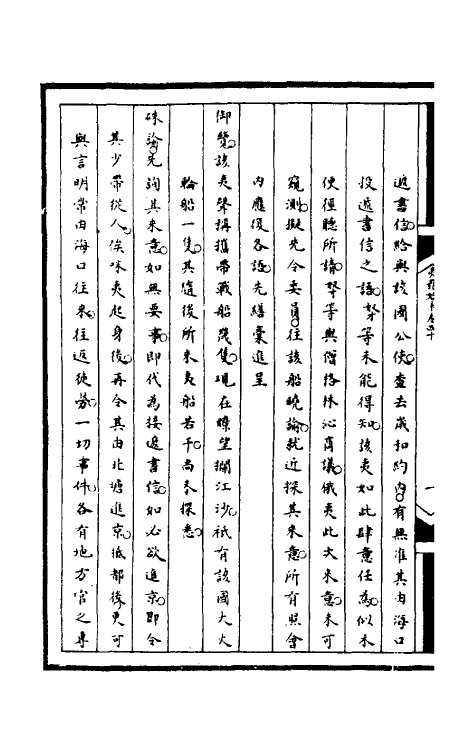 遞書信給與該國公使查去歲和約內有無准其由海口
投遞書信之語奴才等未能得知該夷如此肆意任為似未
便徑聽所請奴才等與僧格林沁商議俄夷此次來意未可
窺測擬先令委員往該船曉諭就近探其來意所有照會
內應復各語先繕稾進呈
御覽該夷聲稱攜帶戰船幾隻現在瞭望攔江沙祇有該國大火
輪船一隻其隨後所來夷船若干尚未探悉
硃諭先詢其來意如無要事即代為接遞書信如必欲進京即令
其少帶從人俟咪夷起身後再令其由北塘進京抵都後更可
與言明常由海口往來往返徒勞一切事件各有地方官之專
一